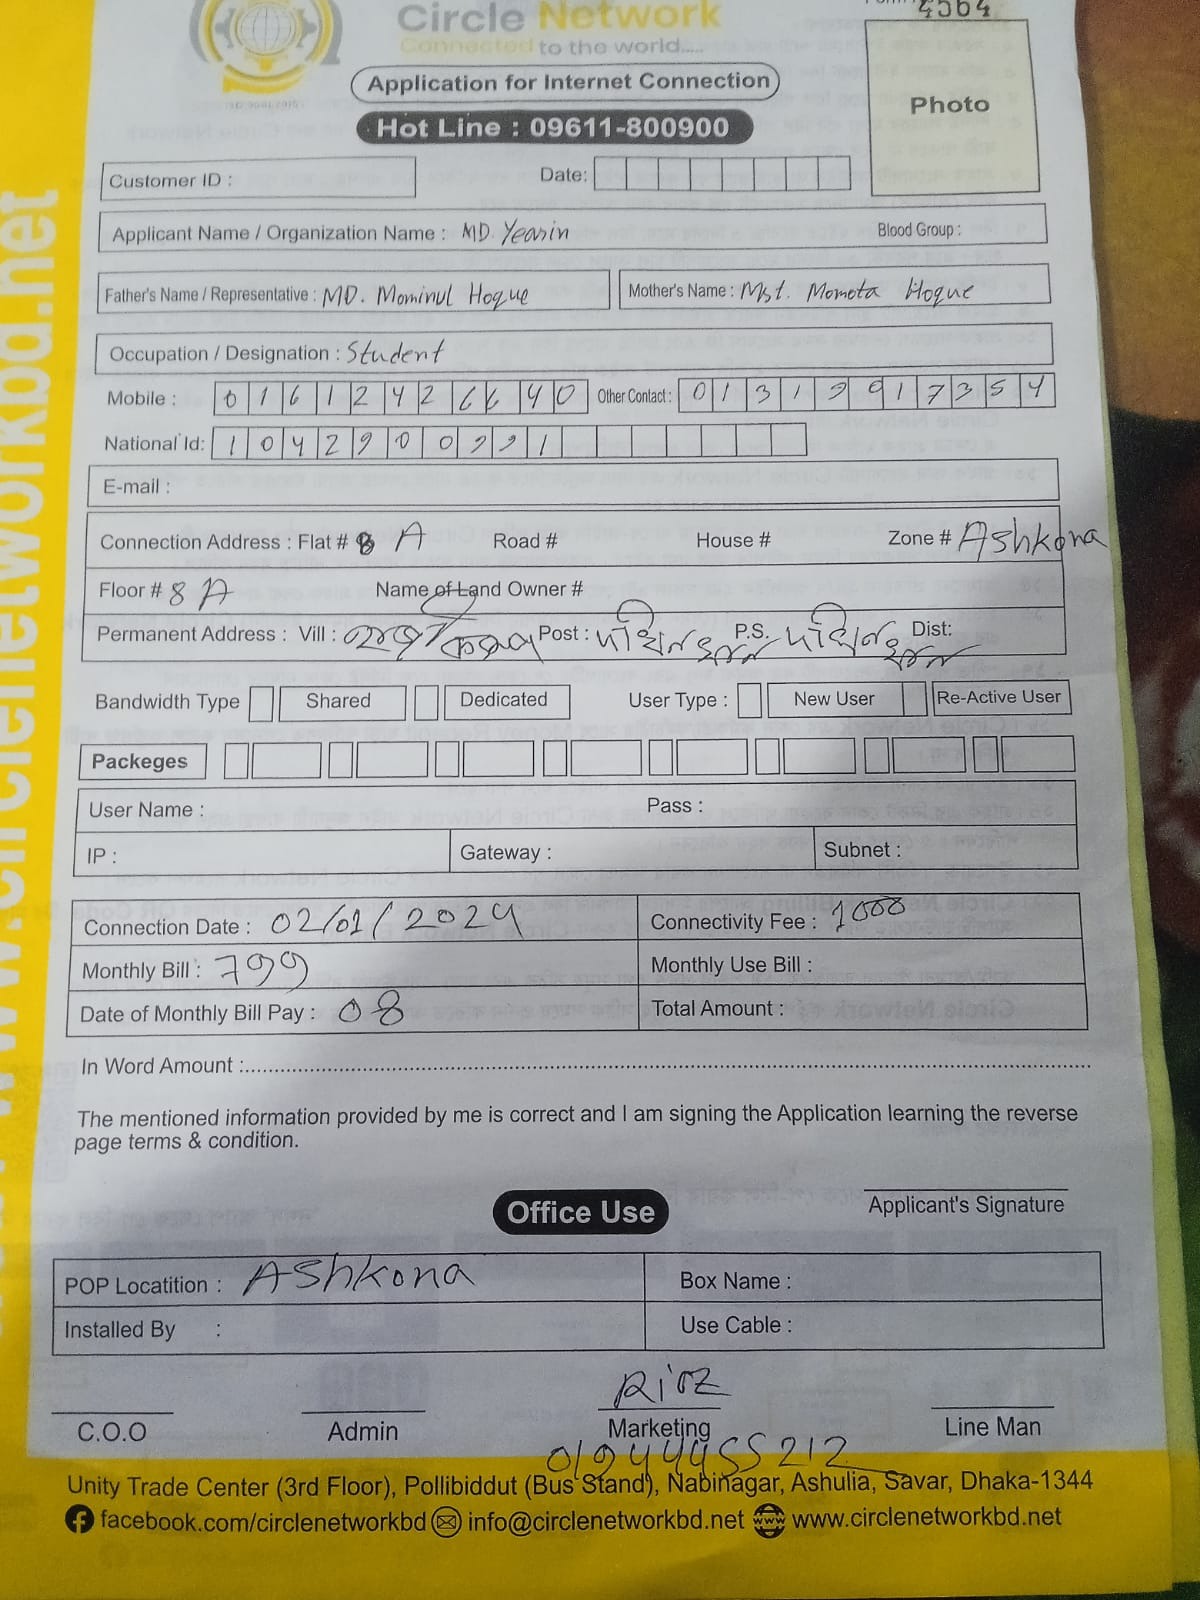 Circle Network
4564
Connected to the world.....
Application for Internet Connection
Photo
Hot Line : 09611-800900
Customer ID :
Date:
Applicant Name / Organization Name : MD. Yearin
Blood Group :
Father's Name / Representative : MD. Mominul Hoque
Mother's Name : Mst. Momota Hoque
Occupation / Designation : Student
Mobile : 01612426640
Other Contact : 01319917354
National Id: 1042900221
E-mail :
Connection Address : Flat # 8 A Road # House # Zone # Ashkona
Floor # 8 A Name of Land Owner #
Permanent Address : Vill : Post : P.S. Dist:
Bandwidth Type Shared Dedicated User Type : New User Re-Active User
Packeges
User Name : Pass :
IP : Gateway : Subnet :
Connection Date : 02/01/2024 Connectivity Fee : 1000
Monthly Bill : 799 Monthly Use Bill :
Date of Monthly Bill Pay : 08 Total Amount :
In Word Amount :
The mentioned information provided by me is correct and I am signing the Application learning the reverse
page terms & condition.
Applicant's Signature
Office Use
POP Locatition : Ashkona Box Name :
Installed By : Use Cable :
C.O.O Admin Marketing Line Man
01944455212
Unity Trade Center (3rd Floor), Pollibiddut (Bus Stand), Nabinagar, Ashulia, Savar, Dhaka-1344
facebook.com/circlenetworkbd info@circlenetworkbd.net www.circlenetworkbd.net
www.circlenetworkbd.net